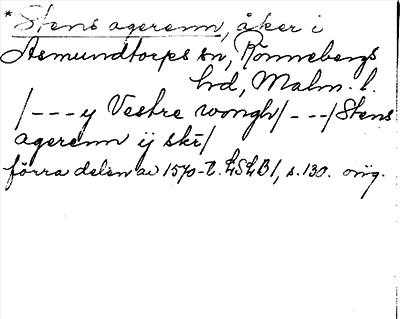 * Stens agerenn, åker i
Asmundtorps sn, Rönnebergs
hd, Malm. l.
/---y Vestre wongh/---/Stens
agerenn ij skr/
förra delen av 1570-t. LSLB 1, s. 130. orig.